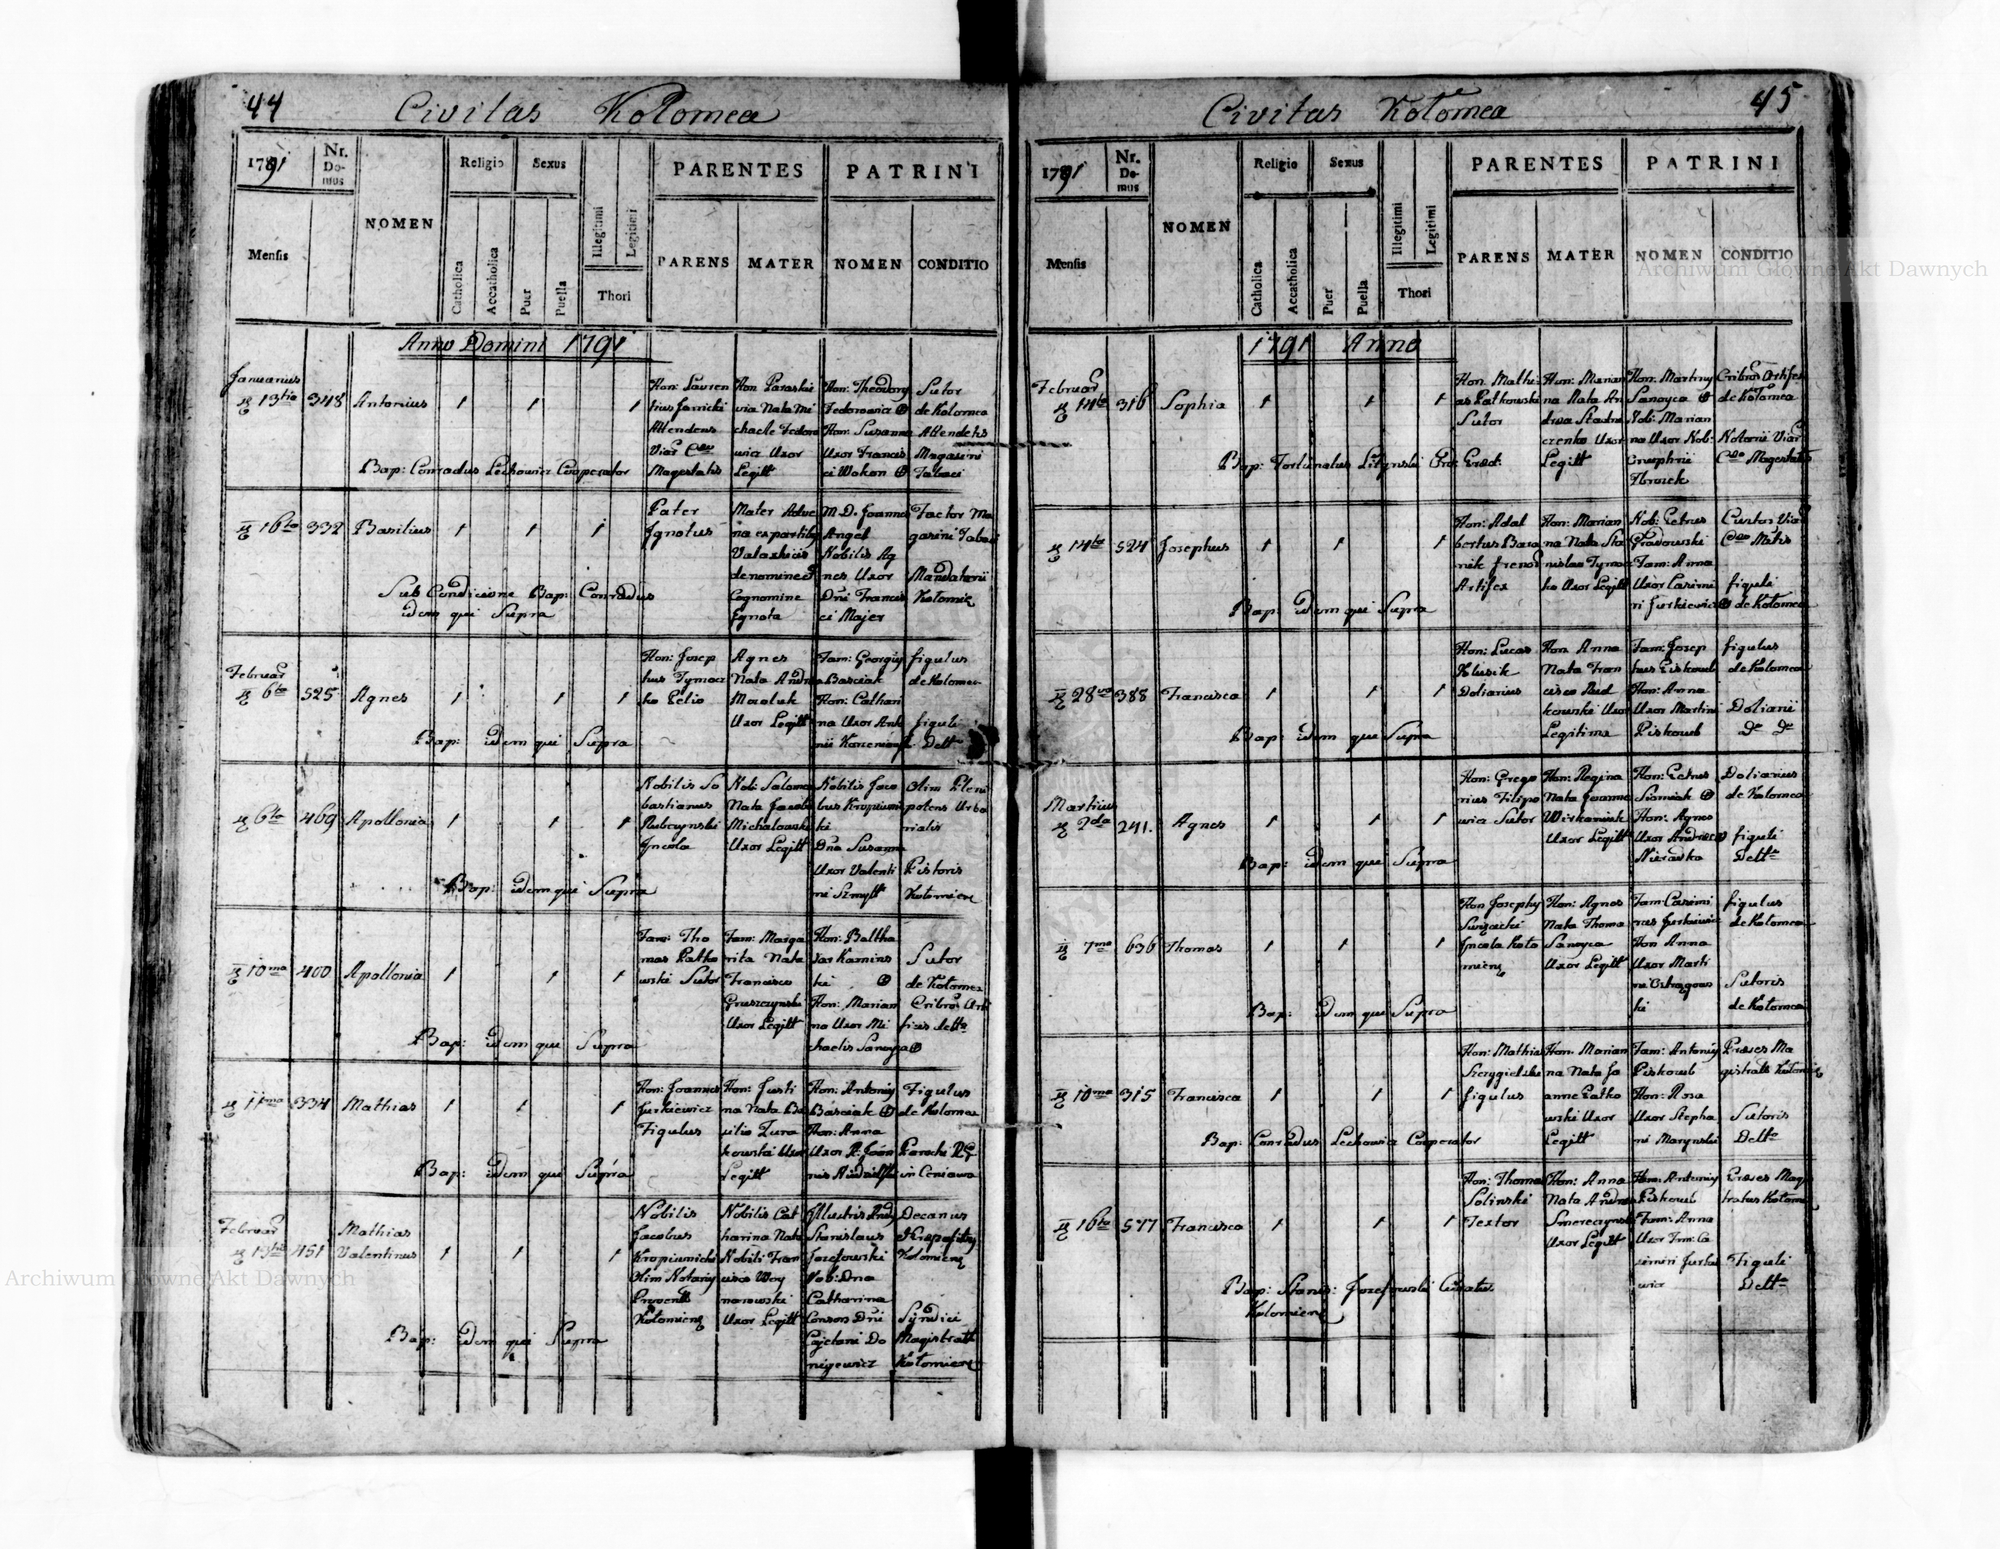 44
Civitas Kolomea
1791
Nr. Do-mus
NOMEN
Religio
Sexus
PARENTES
PATRINI
Mensis
Catholica
Accatholica
Puer
Puella
Illegitimi
Legitimi
Thori
PARENS
MATER
NOMEN
CONDITIO
Anno Domini 1791
Januarius
13tia 348 Antonius
Hon: Lauren
Attendens
Magestatis
Hon Paraske
via Nata Mi
chaele Fedoro
wicz Uxor
Legitt
Hon: Theodorg
Fedorowicz
Hon: Susanna
Uxor Francis
ci Wokon
Sutor
de Kolomea
Attendetis
Magasini
Tabaci
Bap: Conradus Lechowicz Cooperator
16ta 332 Basilius
Pater
Ignotus
Mater Adve
na ex partibg
Valachicis
de nomine et
Cognomine
Ignota
M. D. Joannes
Angel
Nobilis Ag
nes Uxor
Dni Francis
ci Majer
Factor Ma
gasini Tabaci
Mandatarii
Kolomie
Sub Condicione Bap: Conradus
idem qui Supra
Februar
6ta 525 Agnes
Hon: Josep
hus Tymocz
ko Pelio
Agnes
Nata Andrea
Uxor Legitt
Fam: Georgig
Basciak
Hon: Cathari
na Uxor Ant
figulus
de Kolomea
figuli
Dett
Bap: idem qui Supra
6ta 469 Apollonia
Nobilis Se
bastianus
Rubczynski
Incola
Nob: Salomea
Nata Jacobi
Michalowski
Uxor Legitt
Nobilis Jaco
bus Kropiwni
ki
Dna Susanna
Uxor Valenti
ni Szmytt
Olim Pleni
potens Urba
rialis
Pistoris
Kolomien
Bap: idem qui Supra
10ma 400 Apollonia
Fam: Tho
mas Patko
wski Sutor
Fam: Marga
rita Nata
Francisco
Gruszczynski
Uxor Legitt
Hon: Baltha
zar Kamins
ki
Hon: Marian
na Uxor Mi
chaelis Sanoyca
Sutor
de Kolomea
Cribrar Arti
ficis detto
Bap: idem qui Supra
11ma 334 Mathias
Hon: Joannes
Jurkiewicz
Figulus
Hon: Justi
na Nata Ba
silio Zura
kowski Uxor
Legitt
Hon: Antonig
Basciak
Hon: Anna
Uxor
Figulus
de Kolomea
Parochi
in Ceniawa
Bap: idem qui Supra
Februar
13tia 451 Mathias
Valentinus
Nobilis
Jacobus
Kropiwnicki
Olim Notarig
Kolomien
Nobilis Cat
harina Nata
Nobili Fran
cisco Woy
narowski
Uxor Legitt
Illustris
Stanislaus
Jozefowski
Nob: Dna
Catharina
Consors Dni
Cajetani Do
nigiewicz
Decanus
Kolomien
Syndici
Magistratt
Kolomien
Bap: idem qui Supra
45
Civitas Kolomea
1791
Nr. Do-mus
NOMEN
Religio
Sexus
PARENTES
PATRINI
Mensis
Catholica
Accatholica
Puer
Puella
Illegitimi
Legitimi
Thori
PARENS
MATER
NOMEN
CONDITIO
1791 Anno
Februar
14ta 316 Sophia
Hon. Mathi
as Patkowski
Sutor
Hon: Marian
na Nata An
drea Stadni
czenko Uxor
Legitt
Hon: Marting
Sanoyca
Nob: Marian
na Uxor Nob:
Onuphrii
Cribrar Artifex
de Kolomea
Notarii Viar
Magestatis
Bap: Fortunatus Litynski Ord Praed:
14ta 524 Josephus
Hon: Adal
bertus Bara
nik frenor
Artifex
Hon: Marian
na Nata Sta
nislao Tymocz
ko Uxor Legitt
Nob: Petrus
Gradowski
Fam: Anna
Uxor Casimi
ri Jurkiewicz
Custos Viar
figuli
de Kolomea
Bap: idem qui Supra
28va 388 Francisca
Hon: Lucas
Hlusik
Doliarius
Hon Anna
Nata Fran
cisco Rud
kowski Uxor
Legitima
Fam: Josep
hus Piskozub
Hon: Anna
Uxor Martini
Piskozub
figulus
de Kolomea
Doliarii
Do Do
Bap: idem qui Supra
Martius
2da 241. Agnes
Hon: Grego
rius Filipo
wicz Sutor
Hon: Regina
Nata Joanne
Uxor Legitt
Hon: Petrus
Hon: Agnes
Uxor Andreae
Doliarius
de Kolomea
figuli
Detto
Bap: idem qui Supra
7ma 636 Thomas
Hon Josephg
Incola Kolo
mien
Hon: Agnes
Nata Thoma
Sanoyca
Uxor Legitt
Fam: Casimi
rus Jurkiewicz
Hon Anna
Uxor Marti
ni Ostragows
ki
figulus
de Kolomea
Sutoris
de Kolomea
Bap: idem qui Supra
10ma 315 Francisca
Hon: Mathias
Szczygielski
figulus
Hon. Marian
na Nata Jo
anne Patko
wski Uxor
Legitt
Fam: Antonig
Piskozub
Hon: Rosa
Uxor Stepha
ni Marynski
Praeses Ma
gistratt Kolomien
Sutoris
Detto
Bap: Conradus Lechowicz Cooperator
16ta 577 Francisca
Hon: Thomas
Solinski
Textor
Hon: Anna
Nata Andrea
Smereczynski
Uxor Legitt
Fam: Antonig
Piskozub
Fam: Anna
Uxor Fam: Ca
simiri Jurkie
wicz
Praeses Magis
tratus Kolomien
Figuli
Detto
Bap: Stanis: Jozefowski Curatus
Kolomien
Archiwum Główne Akt Dawnych
Archiwum Główne Akt Dawnych